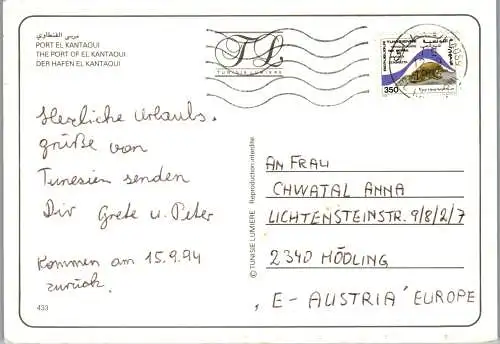 مرسى القنطاوي
PORT EL KANTAOUI
THE PORT OF EL KANTAOUI
DER HAFEN EL KANTAOUI
TL
TUNISIE LUMIERE
350
Herzliche Urlaubs-
grüße von
Tunesien senden
Dir Grete u. Peter
Kommen am 15.9.94
zurück.
433
© TUNISIE LUMIERE Reproduction interdite
AN FRAU
CHWATAL ANNA
LICHTENSTEINSTR. 9/8/2/7
2340 MÖDLING
"E-AUSTRIA" EUROPE